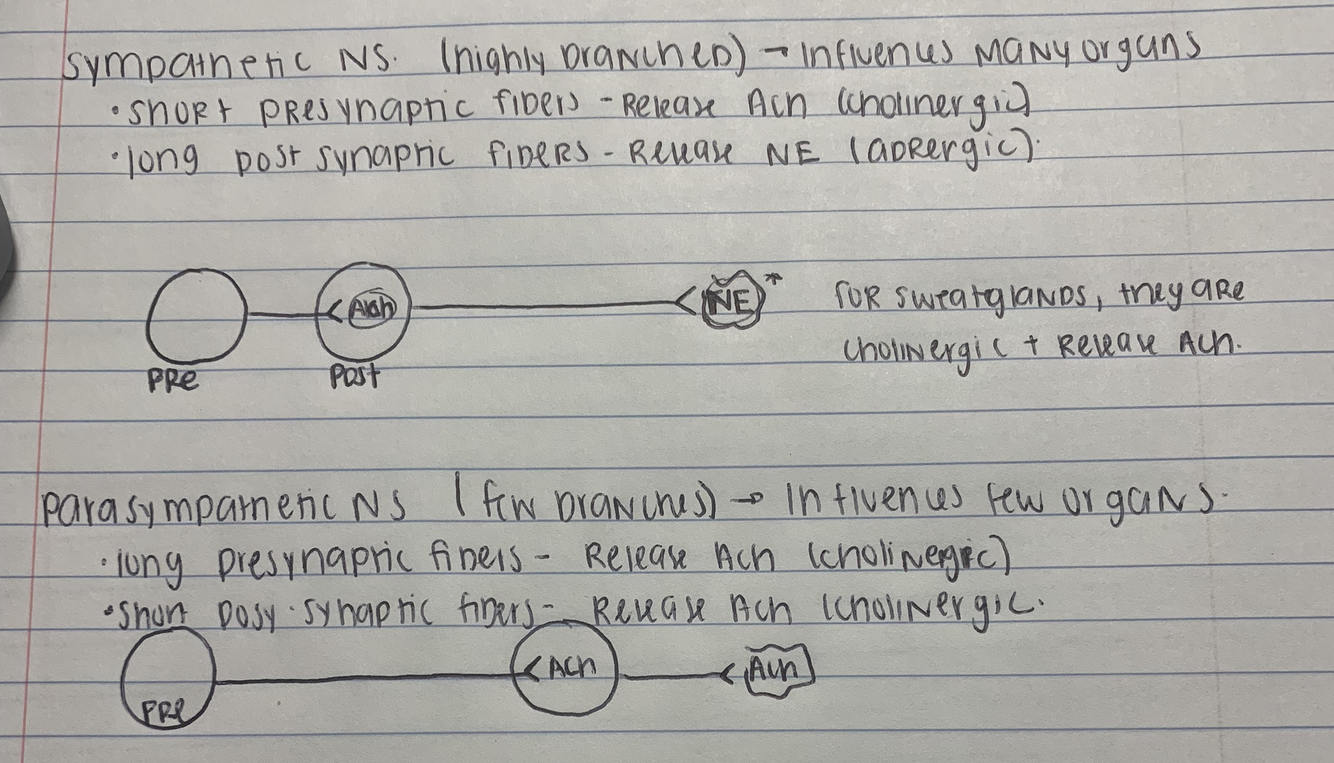 Sympathetic NS. (highly branched) → Influences many organs
• short presynaptic fibers - Release Ach (cholinergic)
• long post synaptic fibers - Release NE (adrergic).
Ach
NE *
for sweatglands, they are
cholinergic + Release Ach.
Pre
Post
parasympathetic NS (few branches) → Influences few organs.
• long presynaptic fibers - Release Ach (cholinergic)
• short posy synaptic fibers - Release Ach (cholinergic.
Pre
Ach
Ach